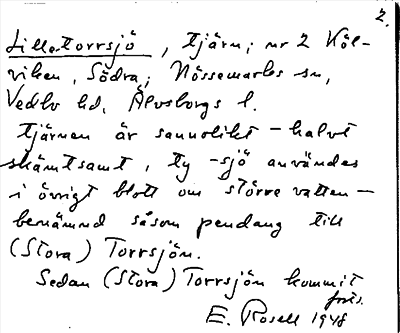 2.
Lilla Torrsjö, tjärn; nr 2 Köl-
viken, Södra; Nössemarks sn,
Vedbo hd, Älvsborgs l.
Tjärnen är sannolikt – halvt
skämtsamt, ty -sjö användes
i övrigt blott om större vatten –
benämnd såsom pendang till
(Stora) Torrsjön.
Sedan (Stora) Torrsjön kommit
forts.
E. Rosell 1948